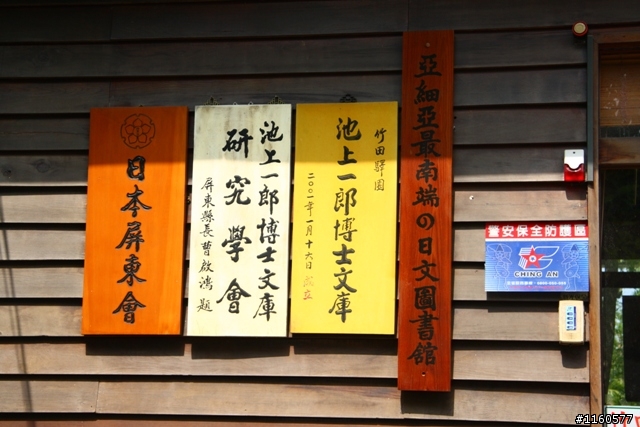 亞細亞最南端の日文圖書館
竹田驛園
池上一郎博士文庫
二〇〇一年一月十六日 成立
池上一郎博士文庫
研究學會
屏東縣長曹啟鴻題
日本屏東會
警安保全防護區
CHING AN
#1160577